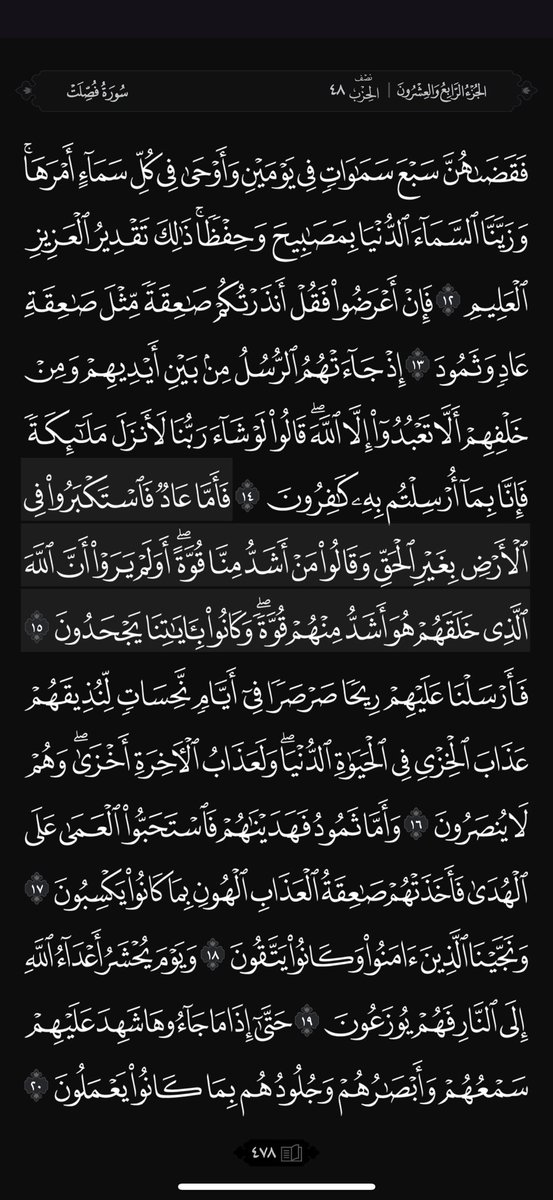 الجُزْءُ الرَّابِعُ وَالعِشْرُونَ | نِصْف الحِزْب ٤٨ سُورَةُ فُصِّلَتْ
فَقَضَىٰهُنَّ سَبْعَ سَمَٰوَاتٖ فِي يَوۡمَيۡنِ وَأَوۡحَىٰ فِي كُلِّ سَمَآءٍ أَمۡرَهَاۚ
وَزَيَّنَّا ٱلسَّمَآءَ ٱلدُّنۡيَا بِمَصَٰبِيحَ وَحِفۡظٗاۚ ذَٰلِكَ تَقۡدِيرُ ٱلۡعَزِيزِ
ٱلۡعَلِيمِ ١٢ فَإِنۡ أَعۡرَضُواْ فَقُلۡ أَنذَرۡتُكُمۡ صَٰعِقَةٗ مِّثۡلَ صَٰعِقَةِ
عَادٖ وَثَمُودَ ١٣ إِذۡ جَآءَتۡهُمُ ٱلرُّسُلُ مِنۢ بَيۡنِ أَيۡدِيهِمۡ وَمِنۡ
خَلۡفِهِمۡ أَلَّا تَعۡبُدُوٓاْ إِلَّا ٱللَّهَۖ قَالُواْ لَوۡ شَآءَ رَبُّنَا لَأَنزَلَ مَلَٰٓئِكَةٗ
فَإِنَّا بِمَآ أُرۡسِلۡتُم بِهِۦ كَٰفِرُونَ ١٤ فَأَمَّا عَادٞ فَٱسۡتَكۡبَرُواْ فِي
ٱلۡأَرۡضِ بِغَيۡرِ ٱلۡحَقِّ وَقَالُواْ مَنۡ أَشَدُّ مِنَّا قُوَّةًۖ أَوَلَمۡ يَرَوۡاْ أَنَّ ٱللَّهَ
ٱلَّذِي خَلَقَهُمۡ هُوَ أَشَدُّ مِنۡهُمۡ قُوَّةٗۖ وَكَانُواْ بِـَٔايَٰتِنَا يَجۡحَدُونَ ١٥
فَأَرۡسَلۡنَا عَلَيۡهِمۡ رِيحٗا صَرۡصَرٗا فِيٓ أَيَّامٖ نَّحِسَاتٖ لِّنُذِيقَهُمۡ
عَذَابَ ٱلۡخِزۡيِ فِي ٱلۡحَيَوٰةِ ٱلدُّنۡيَاۖ وَلَعَذَابُ ٱلۡأٓخِرَةِ أَخۡزَىٰۖ وَهُمۡ
لَا يُنصَرُونَ ١٦ وَأَمَّا ثَمُودُ فَهَدَيۡنَٰهُمۡ فَٱسۡتَحَبُّواْ ٱلۡعَمَىٰ عَلَى
ٱلۡهُدَىٰ فَأَخَذَتۡهُمۡ صَٰعِقَةُ ٱلۡعَذَابِ ٱلۡهُونِ بِمَا كَانُواْ يَكۡسِبُونَ ١٧
وَنَجَّيۡنَا ٱلَّذِينَ ءَامَنُواْ وَكَانُواْ يَتَّقُونَ ١٨ وَيَوۡمَ يُحۡشَرُ أَعۡدَآءُ ٱللَّهِ
إِلَى ٱلنَّارِ فَهُمۡ يُوزَعُونَ ١٩ حَتَّىٰٓ إِذَا مَا جَآءُوهَا شَهِدَ عَلَيۡهِمۡ
سَمۡعُهُمۡ وَأَبۡصَٰرُهُمۡ وَجُلُودُهُم بِمَا كَانُواْ يَعۡمَلُونَ ٢٠
٤٧٨